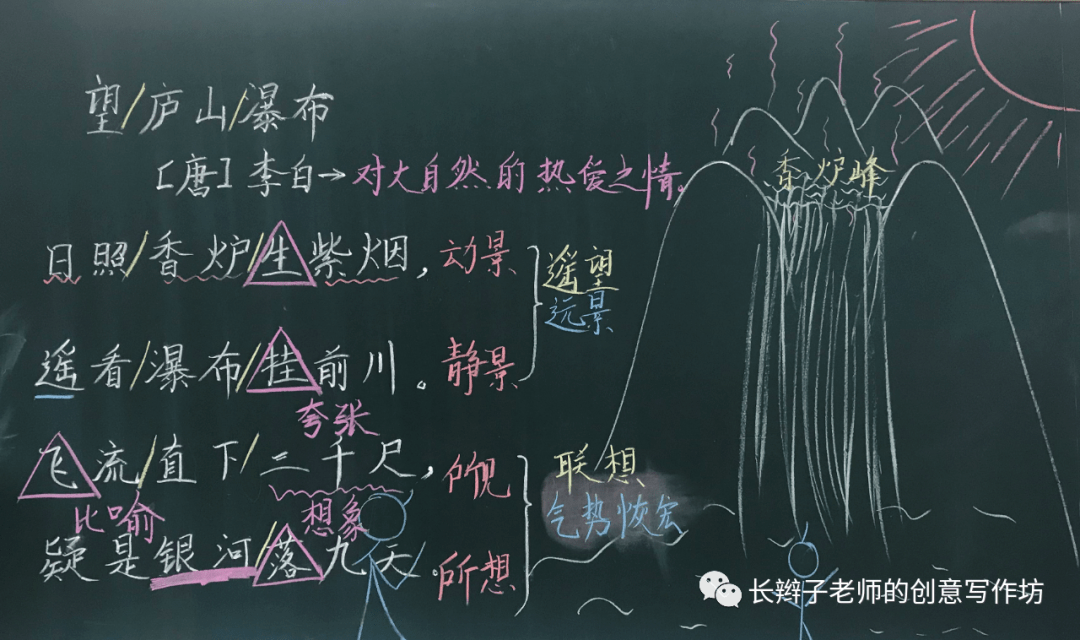 望/庐山/瀑布
[唐]李白→对大自然的热爱之情。
日照/香炉/生紫烟,动景
遥看/瀑布/挂前川。静景
遥望
远景
夸张
飞流/直下/三千尺,所见
比喻
想象
疑是银河/落九天。所想
联想
气势恢宏
香炉峰
长辫子老师的创意写作坊